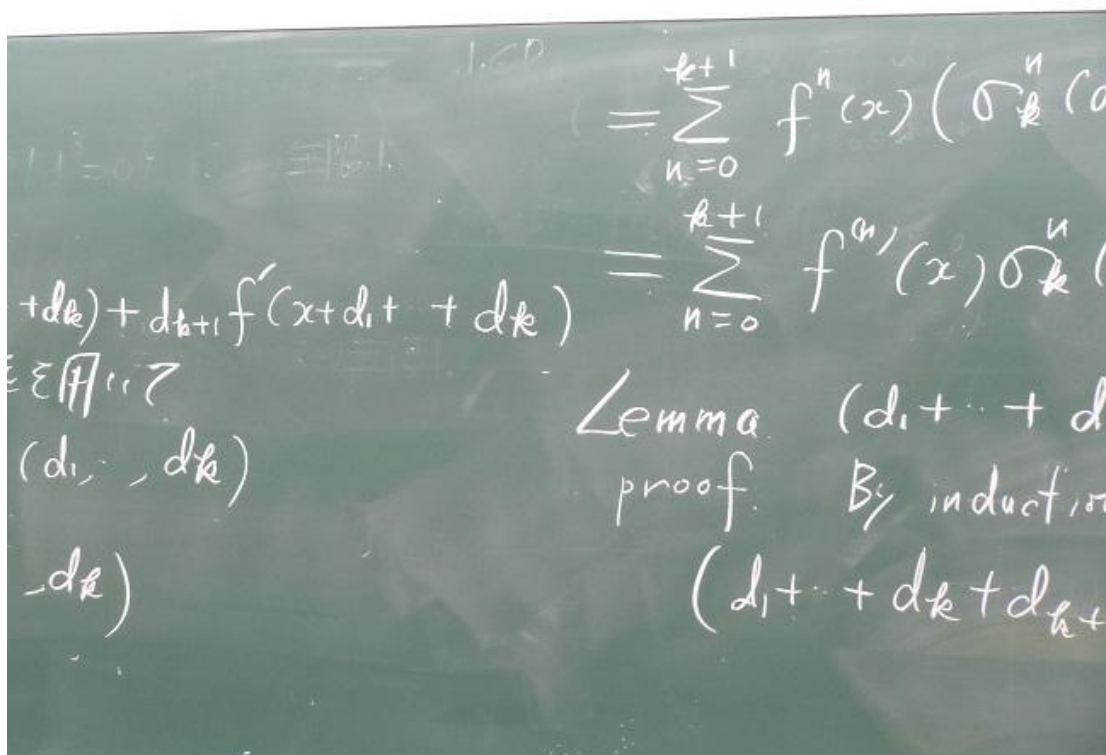 +dk) + dk+1 f′(x+d₁+ ·· + dk)
を用いて
(d₁, ·, dk)
, dk)
= ∑_{n=0}^{k+1} fⁿ(x)(σ_k^n(d
= ∑_{n=0}^{k+1} f⁽ⁿ⁾(x)σ_k^n(
Lemma. (d₁+ ·· + d
proof. By induction
(d₁+ ·· + dk + dk+